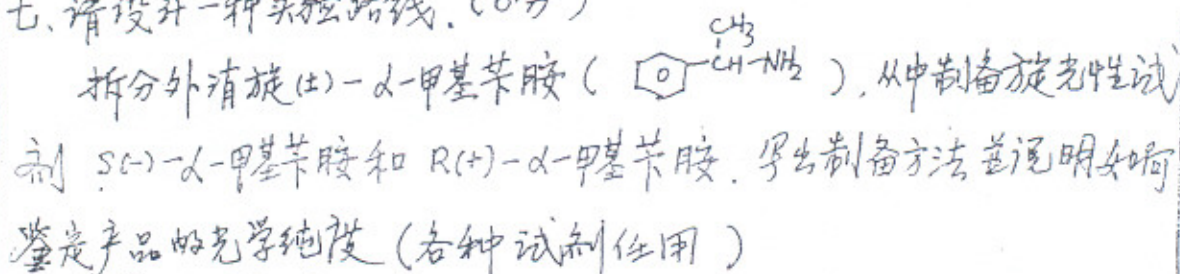 七、请设计一种实验路线.(6分)
CH3
拆分外消旋(±)-α-甲基苄胺( -CH-NH2 ),从中制备旋光性试
剂 S(-)-α-甲基苄胺和 R(+)-α-甲基苄胺. 写出制备方法并说明如何
鉴定产品的光学纯度(各种试剂任用)